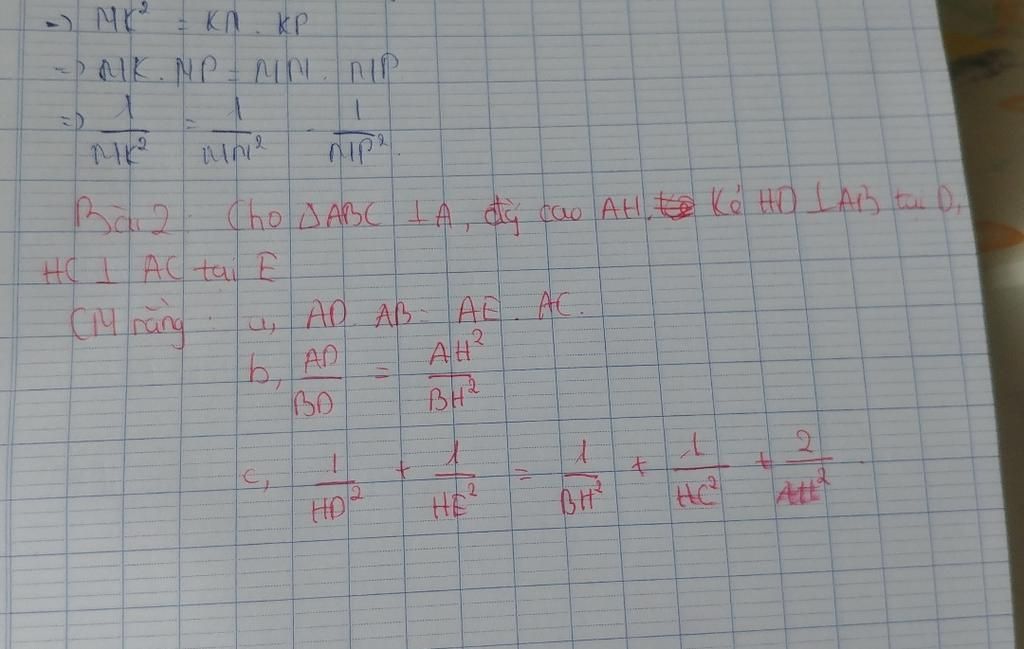 => MK² = KN . KP
=> MK . NP = MN . MP
=> 1/MK² = 1/MN² - 1/MP².
Bài 2: Cho ΔABC ⊥ A, đg cao AH. Kẻ HD ⊥ AB tại D,
HC ⊥ AC tại E
CM rằng: a, AD . AB = AE . AC.
b, AD/BD = AH²/BH²
c, 1/HD² + 1/HE² = 1/BH² + 1/HC² + 2/AH²